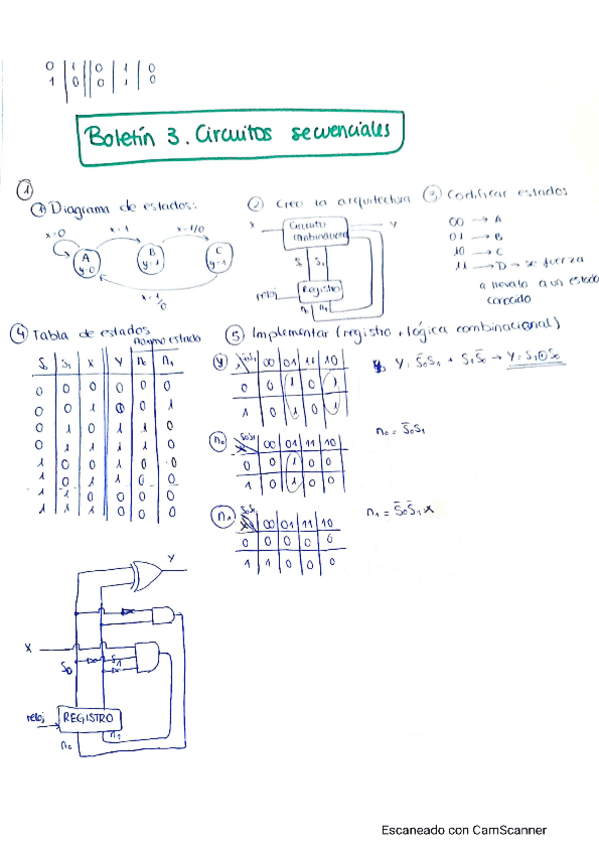 0 | 1 || 0 | 1 | 0
1 | 0 || 0 | 1 | 0
Boletín 3. Circuitos secuenciales
①
① Diagrama de estados:
② Creo la arquitectura
③ Codificar estados
x=0
x=1
x=1/0
A
y=0
B
y=1
C
y=1
x=1/0
X
Circuito
combinacional
Y
S0 S1
Registro
reloj
n0 n1
00 → A
01 → B
10 → C
11 → D → se fuerza
a llevarlo a un estado
conocido
④ Tabla de estados
próximo estado
S0 | S1 | X | Y | n0 | n1
0 0 0 0 0 0
0 0 1 0 0 1
0 1 0 1 1 0
0 1 1 1 1 0
1 0 0 1 0 0
1 0 1 1 0 0
1 1 0 0 0 0
1 1 1 0 0 0
⑤ Implementar (registro + lógica combinacional)
Y
00 01 11 10
0 0 1 0 1
1 0 1 0 1
Y = S̄0S1 + S̄1S0 → Y = S1⊕S0
n0
S0S1
X
00 01 11 10
0 0 1 0 0
1 0 1 0 0
n0 = S̄0S1
n1
S0S1
X
00 01 11 10
0 0 0 0 0
1 1 0 0 0
n1 = S̄0S̄1x
Y
X
S0
S1
reloj
REGISTRO
n0
n1
Escaneado con CamScanner